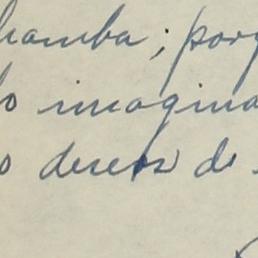 bamba; porq
lo imagina
o deseos de